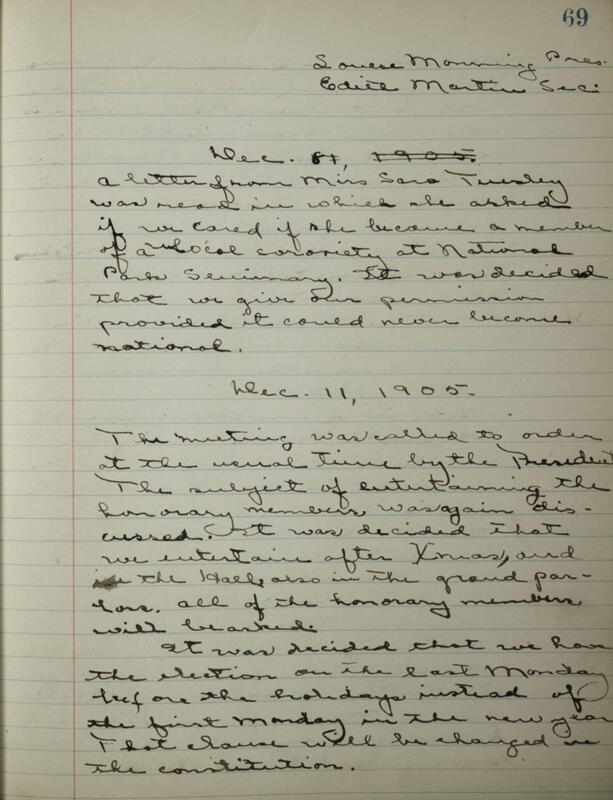 69
Louise Monning Pres.
Edith Martin Sec.
Dec. 11, 1905.
a letter from Miss Sara Tursley
was read in which she asked
if we cared if she became a member
of a local sorority at National
Park Seminary. It was decided
that we give our permission
provided it could never become
national.
Dec. 11, 1905.
The meeting was called to order
at the usual time by the President
The subject of entertaining the
honorary members was again dis-
cussed. It was decided that
we entertain after Xmas, and
in the Hall, also in the grand par-
lors. all of the honorary members
will be asked.
It was decided that we have
the election on the last Monday
before the holidays instead of
the first Monday in the new year
That clause will be changed in
the constitution.